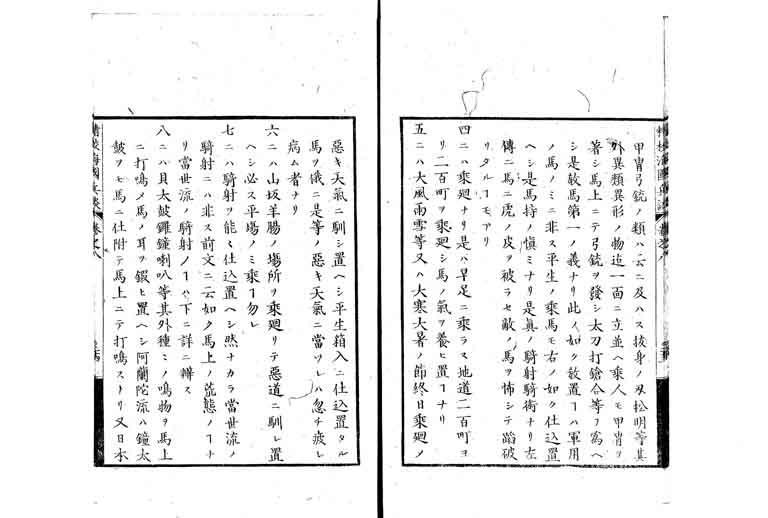 甲冑弓銃ノ類ハ云ニ及ハス抜身ノ刄松明等其
外異類異形ノ物迄一面ニ立並ヘ乗人モ甲冑ヲ
著シ馬上ニテ弓銃ヲ發シ太刀打鎗合等ヲ為ヘ
シ是敎馬第一ノ義ナリ此ノ如ク敎置ヿハ軍用
ノ馬ノミニ非ス平生ノ乗馬モ右ノ如ク仕込置
ヘシ是馬持ノ愼ミナリ是眞ノ騎射騎術ナリ左
傳ニ馬ニ虎ノ皮ヲ被ラセ敵ノ馬ヲ怖シテ蹈破
リタルヿモアリ
四ニハ乗廻ナリ是ハ早足ニ乗ラス地道二百町ヨ
リ二百町ヲ乗廻シ馬ノ氣ヲ養ヒ置ヿナリ
五ニハ大風雨雪等又ハ大寒大暑ノ節終日乗廻ノ
惡キ天氣ニ馴シ置ヘシ平生箱入ニ仕込置タル
馬ヲ俄ニ是等ノ惡キ天氣ニ當ツレハ忽チ疲レ
病ム者ナリ
六ニハ山坂羊腸ノ塲所ヲ乗廻リテ惡道ニ馴レ置
ヘシ必ス平塲ノミ乗ヿ勿レ
七ニハ騎射ヲ能々仕込置ヘシ然ナカラ當世流ノ
騎射ニハ非ス前文ニ云如ク馬上ノ荒態ノヿナ
リ當世流ノ騎射ノヿハ下ニ詳ニ辨ス
八ニハ貝太皷鑼鐘喇叭等其外種々ノ鳴物ヲ馬上
ニ打鳴ノ馬ノ耳ヲ鍜ヒ置ヘシ阿蘭陀流ハ鐘太
皷ヲモ馬ニ仕附テ馬上ニテ打鳴ストリ又日本
精校海國兵談 卷之八